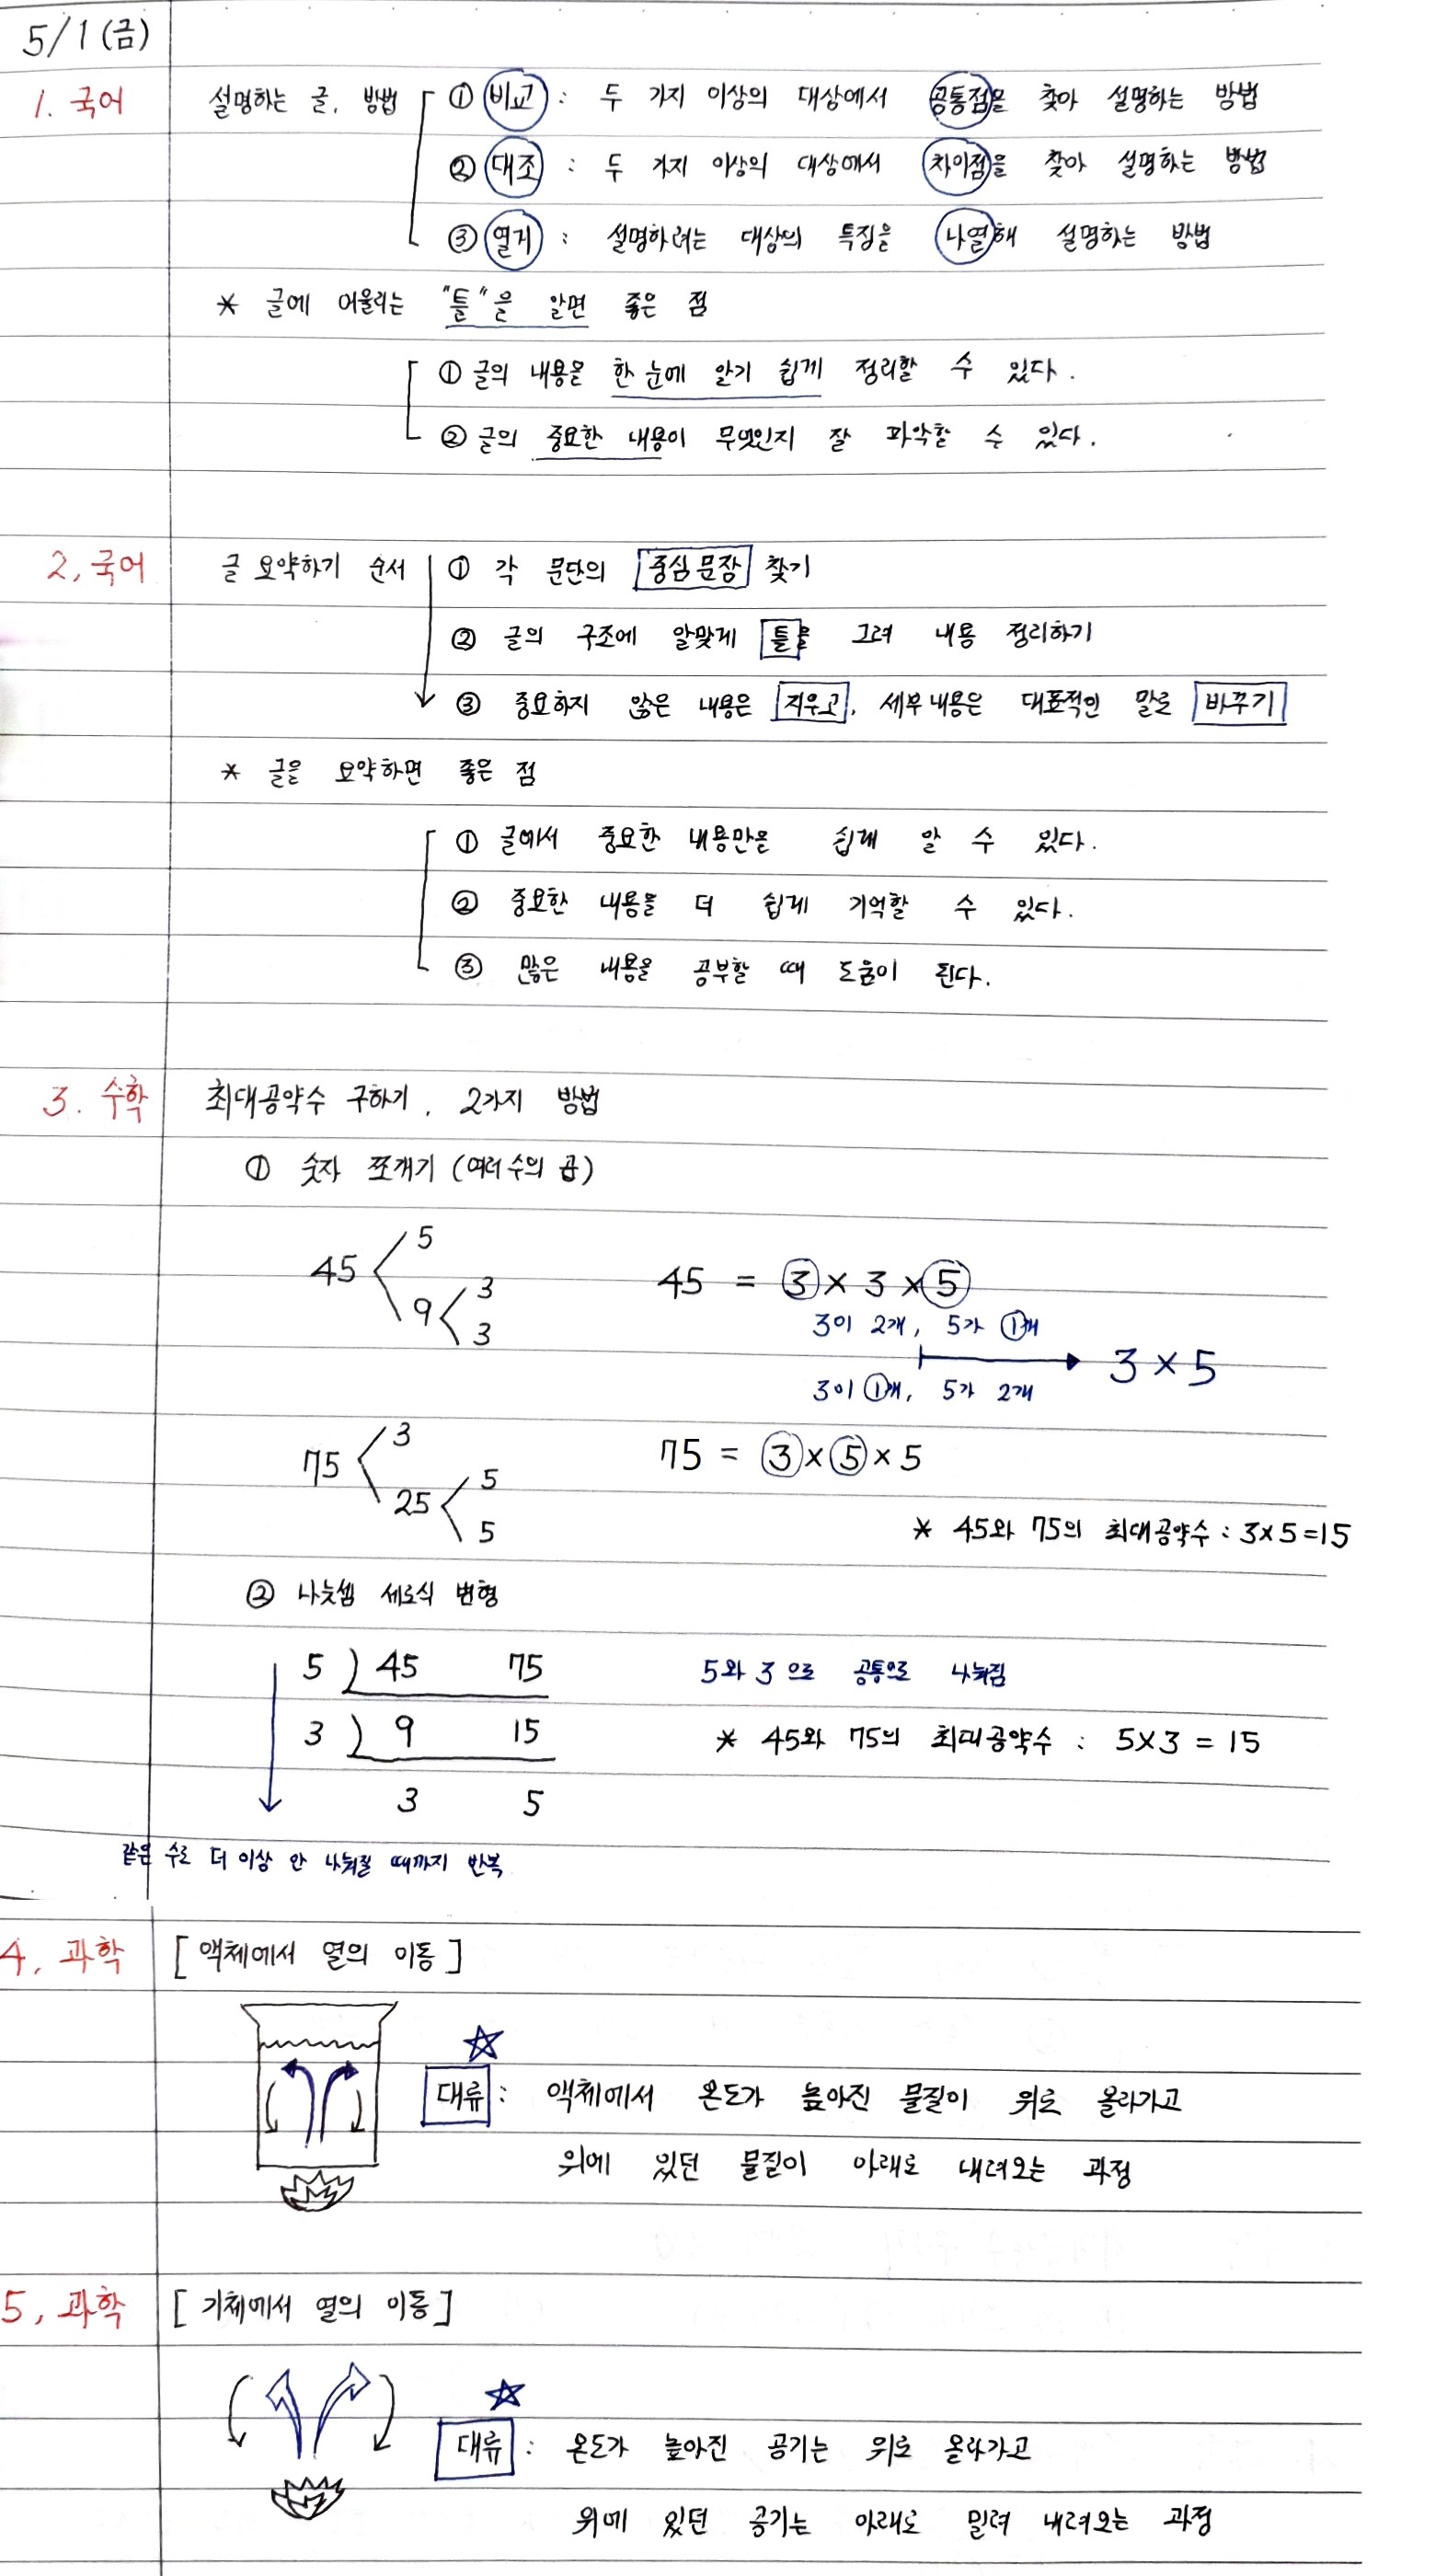 5/1 (금)
1. 국어 설명하는 글, 방법 ① 비교 : 두 가지 이상의 대상에서 공통점을 찾아 설명하는 방법
② 대조 : 두 가지 이상의 대상에서 차이점을 찾아 설명하는 방법
③ 열거 : 설명하려는 대상의 특징을 나열해 설명하는 방법
* 글에 어울리는 "틀"을 알면 좋은 점
① 글의 내용을 한 눈에 알기 쉽게 정리할 수 있다.
② 글의 중요한 내용이 무엇인지 잘 파악할 수 있다.
2. 국어 글 요약하기 순서 ① 각 문단의 중심 문장 찾기
② 글의 구조에 알맞게 틀을 그려 내용 정리하기
③ 중요하지 않은 내용은 지우고, 세부 내용은 대표적인 말로 바꾸기
* 글을 요약하면 좋은 점
① 글에서 중요한 내용만을 쉽게 알 수 있다.
② 중요한 내용을 더 쉽게 기억할 수 있다.
③ 많은 내용을 공부할 때 도움이 된다.
3. 수학 최대공약수 구하기, 2가지 방법
① 숫자 쪼개기 (여러 수의 곱)
45 5 9 3 3
45 = 3 × 3 × 5
3이 2개, 5가 1개
3 × 5
3이 1개, 5가 2개
75 3 25 5 5
75 = 3 × 5 × 5
* 45와 75의 최대공약수 : 3×5=15
② 나눗셈 세로식 변형
5 ) 45 75 5와 3으로 공통으로 나눠짐
3 ) 9 15 * 45와 75의 최대공약수 : 5×3 = 15
3 5
같은 수로 더 이상 안 나눠질 때까지 반복
4. 과학 [액체에서 열의 이동]
대류 : 액체에서 온도가 높아진 물질이 위로 올라가고
위에 있던 물질이 아래로 내려오는 과정
5. 과학 [기체에서 열의 이동]
대류 : 온도가 높아진 공기는 위로 올라가고
위에 있던 공기는 아래로 밀려 내려오는 과정